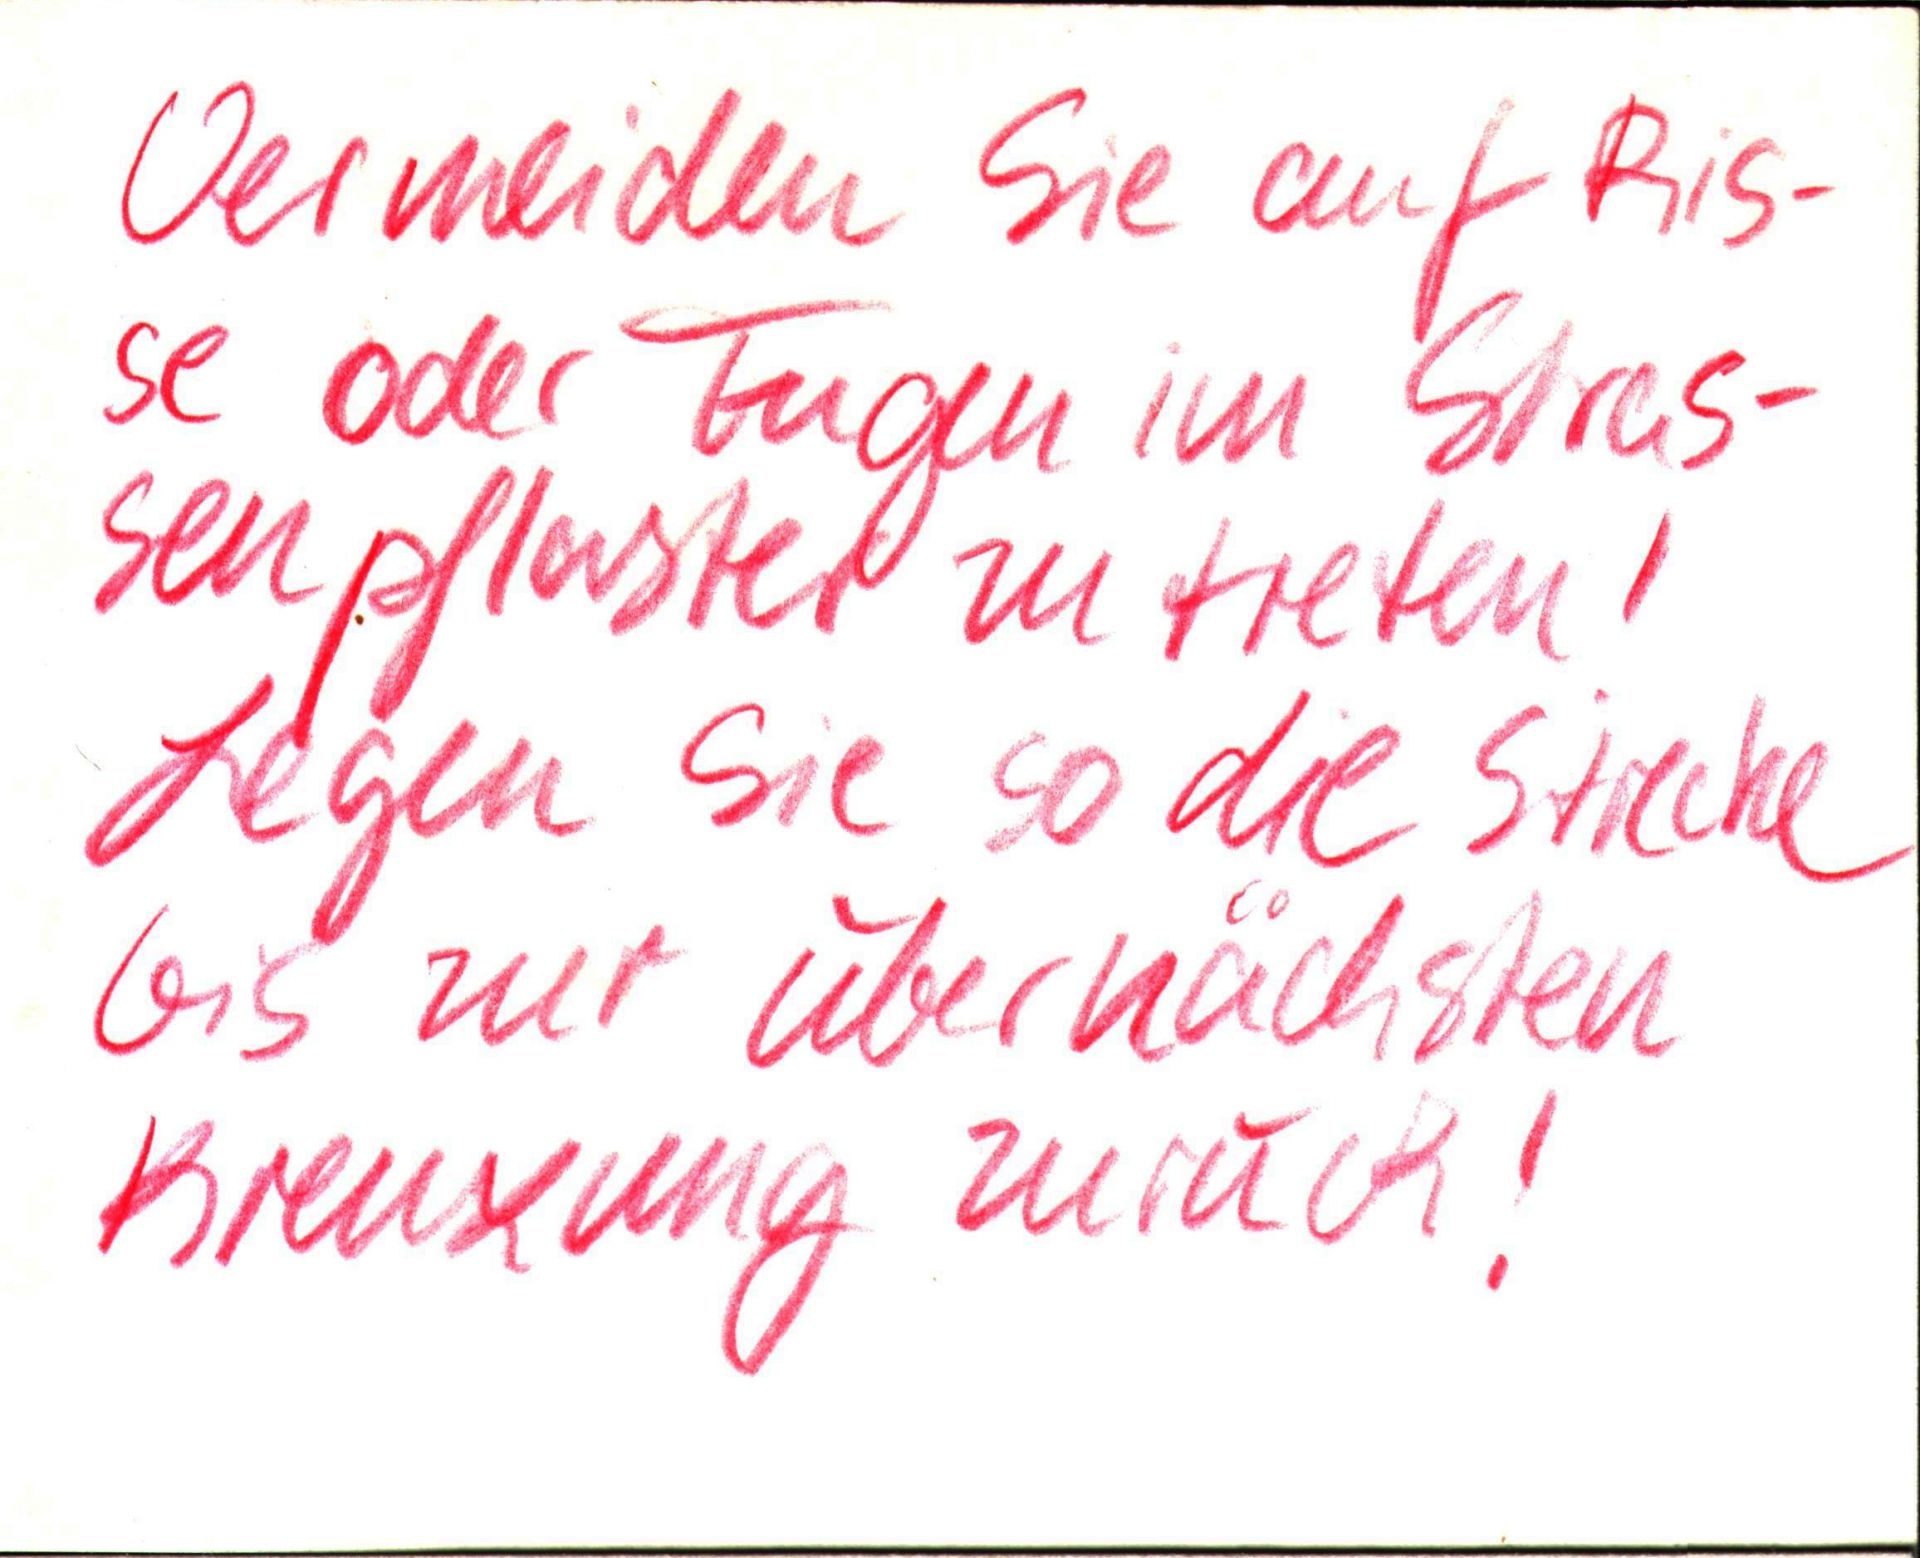 Vermeiden Sie auf Ris-
se oder Fugen im Stras-
senpflaster zu treten!
Legen Sie so die Strecke
bis zur übernächsten
Kreuzung zurück!